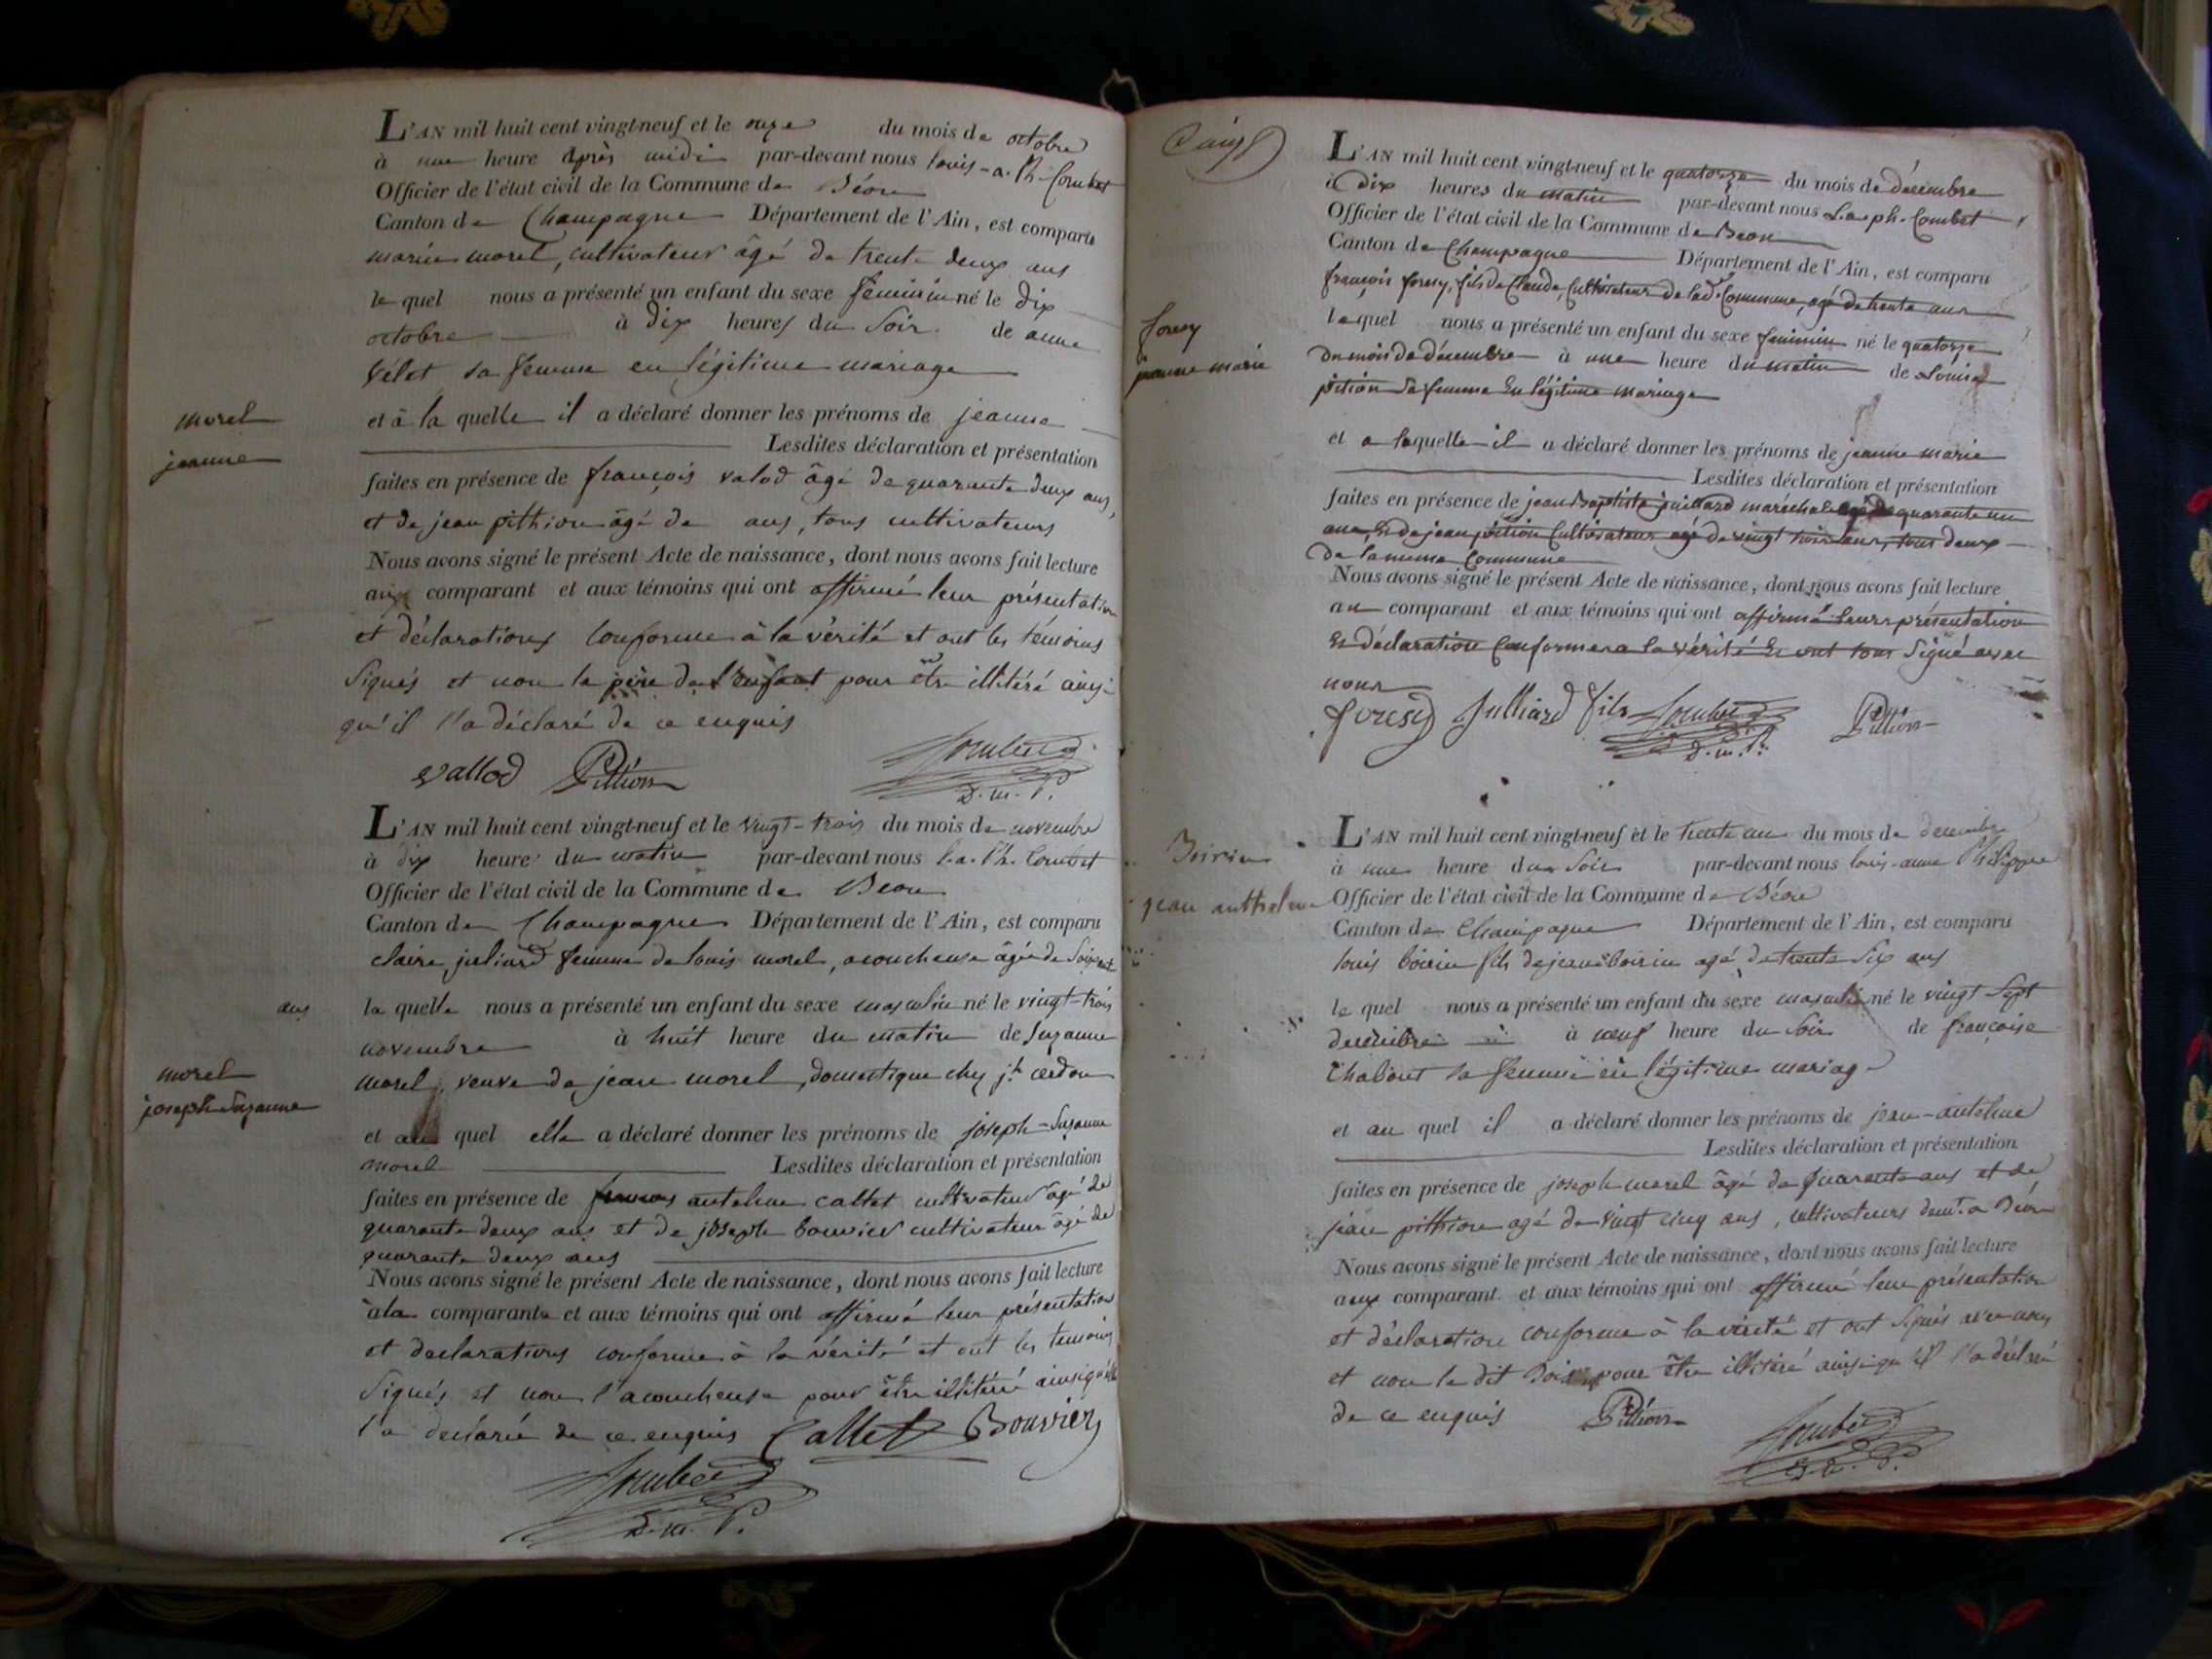 L'AN mil huit cent vingt-neuf et le onze du mois de octobre
à une heure après midi par-devant nous louis-a. Ph. Combet
Officier de l'état civil de la Commune de Béon
Canton de Champagne Département de l'Ain, est comparu
marin morel, cultivateur âgé de trente deux ans
le quel nous a présenté un enfant du sexe féminin né le dix
octobre à dix heures du soir de anne
vélet sa femme en légitime mariage
morel
jeanne
et à la quelle il a déclaré donner les prénoms de jeanne
Lesdites déclaration et présentation
faites en présence de françois valod âgé de quarante deux ans,
et de jean pithion âgé de ans, tous cultivateurs
Nous avons signé le présent Acte de naissance, dont nous avons fait lecture
aux comparant et aux témoins qui ont affirmé leur présentation
et déclarations conforme à la vérité et ont les témoins
signés et non le père de l'enfant pour être illitéré ainsi
qu'il l'a déclaré de ce enquis
vallod Pittion Combet
D. m. P.
L'AN mil huit cent vingt-neuf et le vingt-trois du mois de novembre
à dix heure du matin par-devant nous l. a. Ph. Combet
Officier de l'état civil de la Commune de Beon
Canton de Champagne Département de l'Ain, est comparu
claire juliard femme de louis morel, acoucheuse âgée de soixante
ans
la quelle nous a présenté un enfant du sexe masculin né le vingt-trois
novembre à huit heure du matin de suzanne
morel, veuve de jean morel, domestique chez jh cerdon
morel
joseph suzanne
et au quel elle a déclaré donner les prénoms de joseph-suzanne
morel Lesdites déclaration et présentation
faites en présence de antelme callet cultivateur âgé de
quarante deux ans et de joseph bouvier cultivateur âgé de
quarante deux ans
Nous avons signé le présent Acte de naissance, dont nous avons fait lecture
à la comparante et aux témoins qui ont affirmé leur présentation
et declarations conforme à la vérité et ont les temoins
signés et non l'acoucheuse pour être illitéré ainsi qu'elle
l'a declarée de ce enquis Callet Bouvier
Combet
D. m. P.
L'AN mil huit cent vingt-neuf et le quatorze du mois de décembre
à dix heures du matin par-devant nous L. a. ph. Combet
Officier de l'état civil de la Commune de Beon
Canton de Champagne Département de l'Ain, est comparu
françois foresy, fils de Claude, Cultivateur de lad. Commune, agé de trente ans
foresy
jeanne marie
laquel nous a présenté un enfant du sexe feminin né le quatorze
du mois de décembre à une heure du matin de Louise
pition sa femme en légitime mariage
et a laquelle il a déclaré donner les prénoms de jeanne marie
Lesdites déclaration et présentation
faites en présence de jean Baptiste juillard maréchal agé de quarante un
ans, et de jean pition Cultivateur agé de vingt trois ans, tous deux
de la meme Commune
Nous avons signé le présent Acte de naissance, dont nous avons fait lecture
au comparant et aux témoins qui ont affirmé leurs présentation
et déclaration conformes a la vérité et ont tous signé avec
nous
foresy Julliard fils Combet Pittion
D. m. P.
Boirin
jean anthelme
L'AN mil huit cent vingt-neuf et le trente un du mois de decembre
à une heure du soir par-devant nous louis-anne Philippe
Officier de l'état civil de la Commune de Béon
Canton de Champagne Département de l'Ain, est comparu
louis boirin fils de jean boirin agé de trente six ans
le quel nous a présenté un enfant du sexe masculin né le vingt sept
decembre à neuf heure du soir de françoise
Chabout sa femme en légitime mariage
et au quel il a déclaré donner les prénoms de jean-antelme
Lesdites déclaration et présentation
faites en présence de joseph morel âgé de quarante ans et de
jean pithion agé de vingt cinq ans, cultivateurs demt. a Béon
Nous avons signé le présent Acte de naissance, dont nous avons fait lecture
aux comparant et aux témoins qui ont affirmé leur présentation
et déclaration conforme à la vérité et ont signés avec nous
et non le dit Boirin pour être illitéré ainsi qu'il l'a déclaré
de ce enquis Pittion Combet
D. m. P.